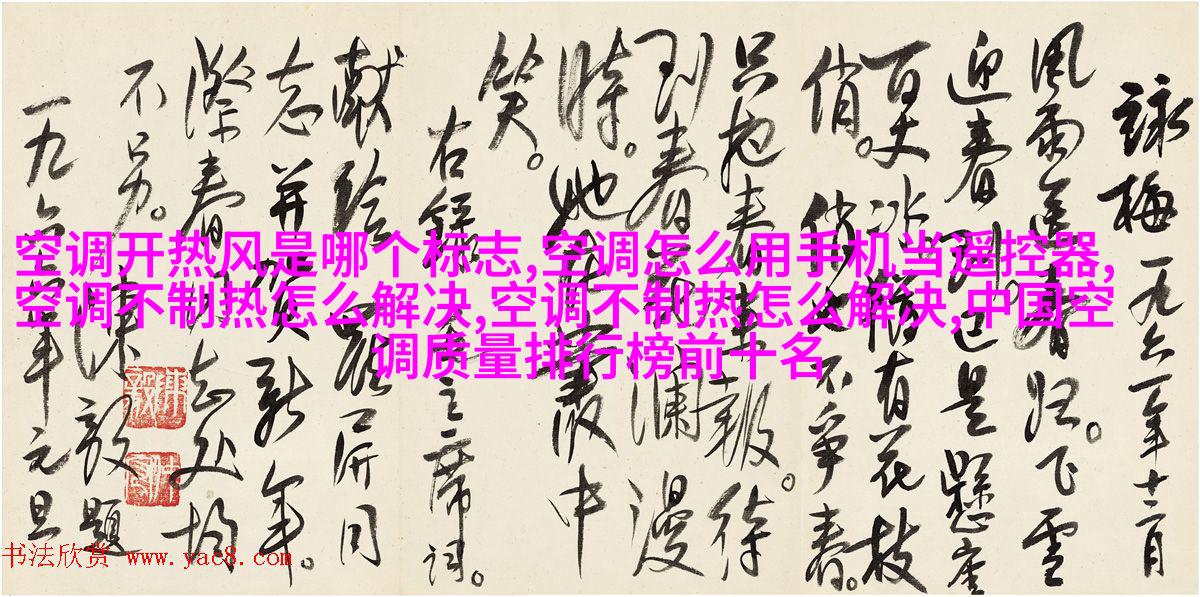 詠梅 一九六一年十二月
風雨送春歸。飞雪
迎春到。已是懸崖
百丈冰。犹有花枝
俏。俏也不爭春。
只把春来報。待
到春花瀾漫
時。她在叢中
笑。
右録毛主席词。
献给 同
志并賀新年。
春 志处均
不另。陳毅題
一九六二年元旦
空调开热风是哪个标志,空调怎么用手机当遥控器,
空调不制热怎么解决,空调不制热怎么解决,中国空
调质量排行榜前十名
书法欣赏 www.yac8.com